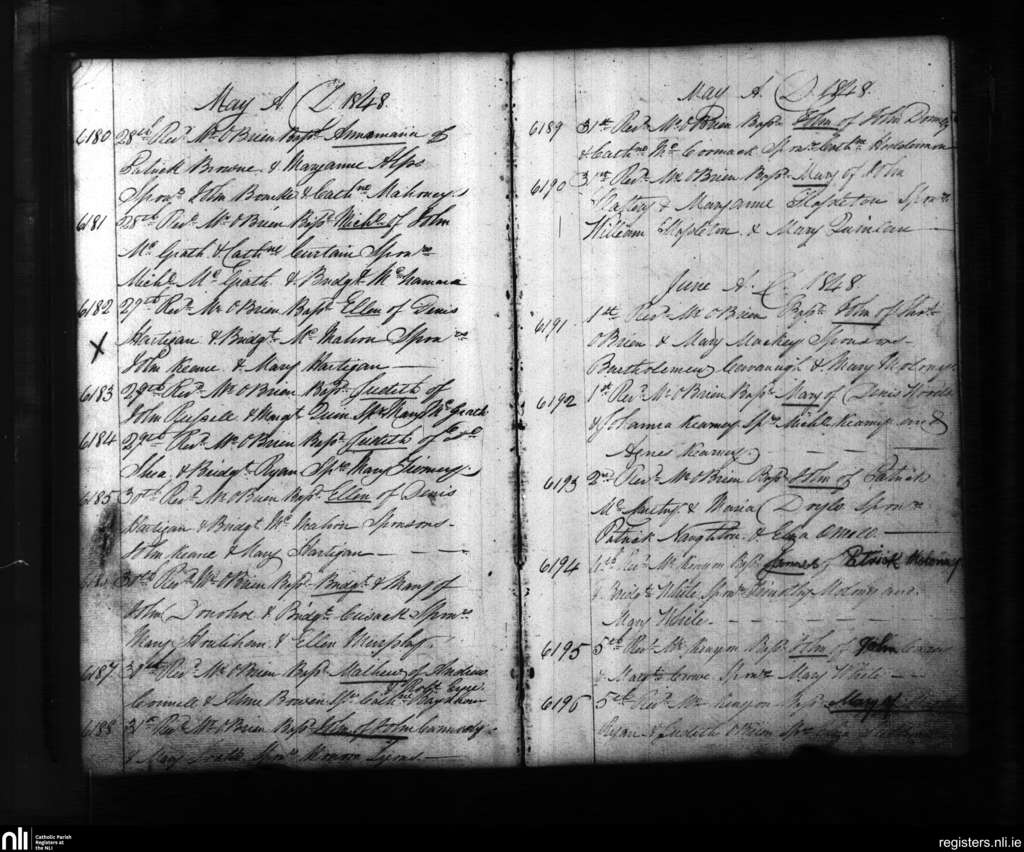 May A. D. 1848
6180 28th Revd. Mr. O'Brien Bapd. Annamaria of
Patrick Browne & Maryanne Alps
Sponrs. John Bourke & Cathne. Mahoney.
6181 28th Revd. Mr. O'Brien Bapd. Michl. of John
Mc. Grath & Cathne. Curtain Sponrs.
Michl. Mc. Grath & Bridgt. Mc. Namara
6182 29th Revd. Mr. O'Brien Bapd. Ellen of Denis
X Hartigan & Bridgt. Mc. Mahon Sponrs.
John Keane & Mary Hartigan
6183 29th Revd. Mr. O'Brien Bapd. Judith of
John Russell & Margt. Quin Sp. Mary Mc. Grath
6184 29th Revd. Mr. O'Brien Bapd. Judith of
Shea & Bridgt. Ryan Sps. Mary
6185 30th Revd. Mr. O'Brien Bapd. Ellen of Denis
Hartigan & Bridgt. Mc. Mahon Sponsors
John Keane & Mary Hartigan
Revd. Mr. O'Brien Bapd. Bridgt. & Mary of
John Donohoe & Bridgt. Cusack Sponrs.
Mary Houlihan & Ellen Murphy
6187 Revd. Mr. O'Brien Bapd. Mathew of Andrew
Connell & Bowen Sps. Cathne.
6188 31st Revd. Mr. O'Brien Bapd. John of John
& Mary Sponrs. Lyons
May A. D. 1848.
6189 31st Revd. Mr. O'Brien Bapd. Ellen of John
& Cathne. Mc. Cormack Sponr. Cathne.
6190 31st Revd. Mr. O'Brien Bapd. Mary of John
Slattery & Maryanne Stapleton Sponrs.
William Stapleton & Mary Quinlan
June A. D. 1848
6191 1st Revd. Mr. O'Brien Bapd. John of
O'Brien & Mary Mackey Sponsors
Bartholemew Cavanagh & Mary
6192 1st Revd. Mr. O'Brien Bapd. Mary of Denis Woods
& Johanna Kearney Sps. Michl. Kearney and
Agnes Kearney.
6193 2nd Revd. Mr. O'Brien Bapd. John of Patrick
Mc. & Maria Doyle Sponrs.
Patrick Naughton & Eliza
6194 Revd. Mr. Kenyon Bapd. James of Patrick Moloney
& Bridgt. White Sponrs. Timothy Moloney and
Mary White
6195 5th Revd. Mr. Kenyon Bapd. John of John
& Crowe Sponr. Mary White
6196 5th Revd. Mr. Kenyon Bapd. Mary of
Ryan & Judith O'Brien
nli
Catholic Parish
Registers at
the NLI
registers.nli.ie